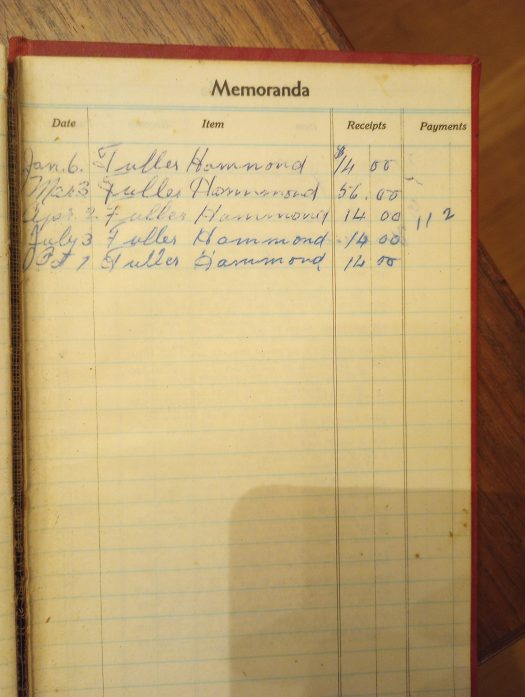 Memoranda
Date Item Receipts Payments
Jan. 6. Fuller Hammond $14 00
Mar 3 Fuller Hammond 56.00
Apr. 2 Fuller Hammond 14 00 112
July 3 Fuller Hammond 14 00
Oct 1 Fuller Hammond 14 00